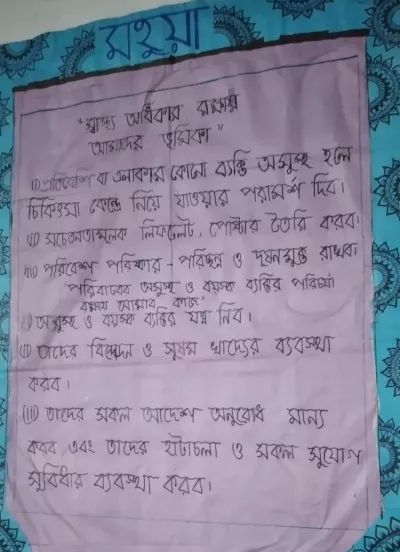 মহুয়া
"স্বাস্থ্য অধিকার রক্ষায়
আমাদের ভূমিকা"
(i) প্রতিবেশি বা এলাকার কোনো ব্যক্তি অসুস্থ হলে
চিকিৎসা কেন্দ্রে নিয়ে যাওয়ার পরামর্শ দিব।
(ii) সচেতনতামূলক লিফলেট, পোষ্টার তৈরি করব।
(iii) পরিবেশ পরিষ্কার - পরিচ্ছন্ন ও দূষনমুক্ত রাখব।
"পরিবারের অসুস্থ ও বয়স্ক ব্যক্তির পরিচর্যা
রক্ষায় আমার কাজ"
(i) অসুস্থ ও বয়স্ক ব্যক্তির যত্ন নিব।
(ii) তাদের বিনোদন ও সুষম খাদ্যের ব্যবস্থা
করব।
(iii) তাদের সকল আদেশ অনুরোধ মান্য
করব এবং তাদের হাঁটাচলা ও সকল সুযোগ
সুবিধার ব্যবস্থা করব।